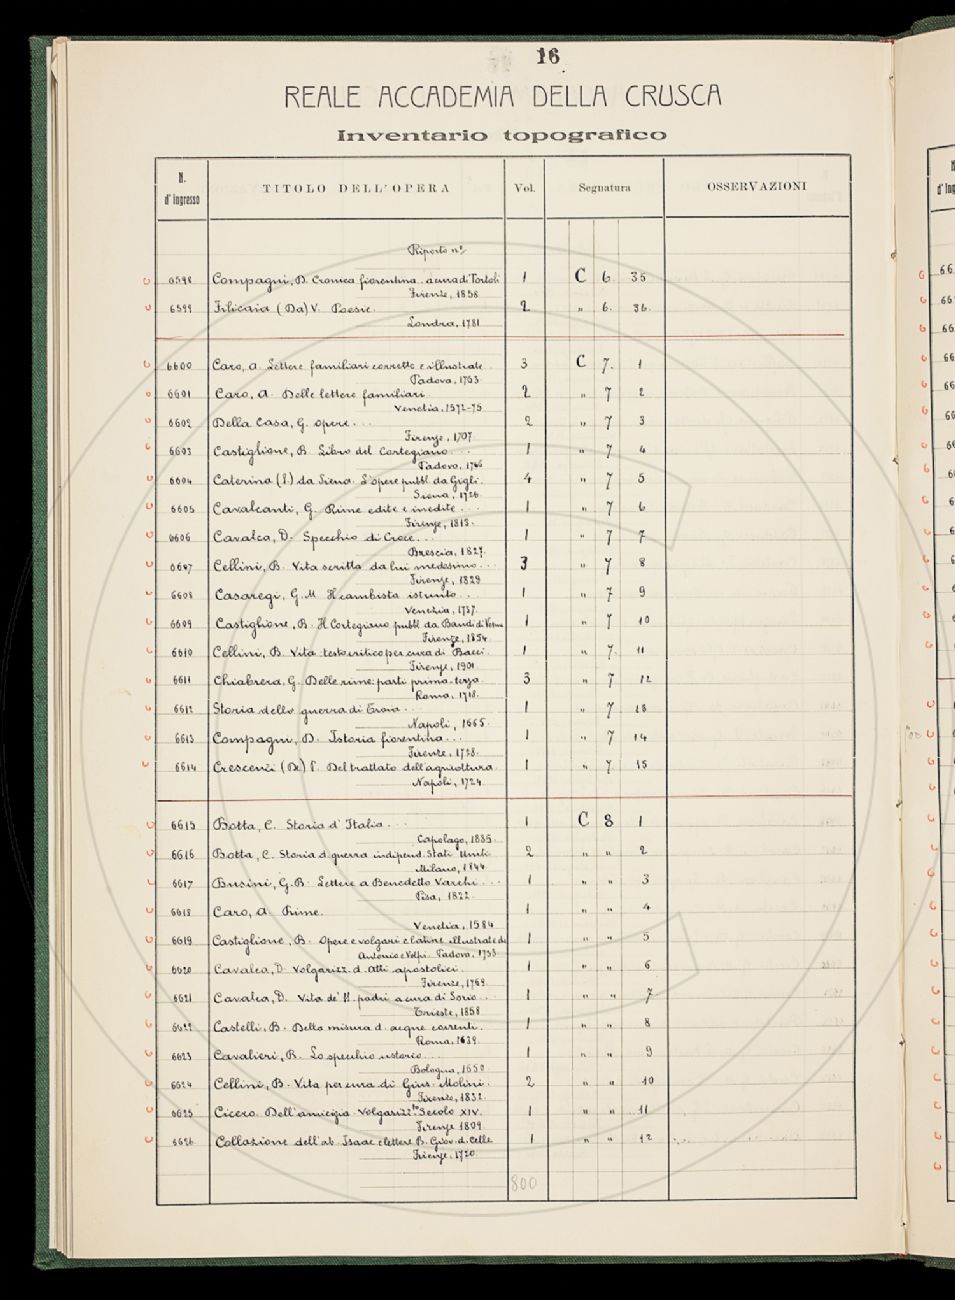 16
REALE ACCADEMIA DELLA CRUSCA
Inventario topografico
N. d'Ingresso TITOLO DELL'OPERA Vol. Segnatura OSSERVAZIONI
Riporto n.º
6598 Compagni, D. Cronica fiorentina.. a cura di Tortoli 1 C 6. 35
Firenze, 1858
6599 Filicaia (Da) V. Poesie. 2 " 6. 36.
Londra, 1781
6600 Caro, A. Lettere familiari corrette e illustrate 3 C 7. 1
Padova, 1763.
6601 Caro, A. Delle lettere familiari 2 " 7 2
Venetia, 1572-75
6602 Della Casa, G. Opere... 2 " 7 3
Firenze, 1707
6603 Castiglione, B. Libro del Cortegiano... 1 " 7 4
Padova, 1766
6604 Caterina (S.) da Siena. L'opere pubbl. da Gigli. 4 " 7 5
Siena, 1726.
6605 Cavalcanti, G. Rime edite e inedite... 1 " 7 6
Firenze, 1813.
6606 Cavalca, D. Specchio di Croce... 1 " 7 7
Brescia, 1827.
6607 Cellini, B. Vita scritta da lui medesimo... 3 " 7 8
Firenze, 1829
6608 Casaregi, G. M. Il cambista istruito... 1 " 7 9
Venezia, 1737.
6609 Castiglione, B. Il Cortegiano pubbl. da Baudi di Vesme 1 " 7 10
Firenze, 1854.
6610 Cellini, B. Vita testo critico per cura di Bacci. 1 " 7. 11
Firenze, 1901.
6611 Chiabrera, G. Delle rime: parti prima-terza. 3 " 7 12
Roma, 1718.
6612 Storia della guerra di Troia... 1 " 7 13
Napoli, 1665.
6613 Compagni, D. Istoria fiorentina... 1 " 7 14
Firenze, 1728.
6614 Crescenzi (De) P. Del trattato dell'agricoltura. 1 " 7. 15
Napoli, 1724.
6615 Botta, C. Storia d'Italia... 1 C 8 1
Capolago, 1835.
6616 Botta, C. Storia d. guerra indipend. Stati Uniti. 2 " " 2
Milano, 1844.
6617 Busini, G. B. Lettere a Benedetto Varchi... 1 " " 3
Pisa, 1822.
6618 Caro, A. Rime. 1 " " 4
Venetia, 1584
6619 Castiglione, B. Opere volgari e latine illustrate da 1 " " 5
Antonio e Volpi. Padova, 1733
6620 Cavalca, D. Volgarizz. d. Atti apostolici. 1 " " 6
Firenze, 1769.
6621 Cavalca, D. Vita de' SS. padri a cura di Sorio... 1 " " 7
Trieste, 1858
6622 Castelli, B. Della misura d. acque correnti. 1 " " 8
Roma, 1639.
6623 Cavalieri, B. Lo specchio ustorio... 1 " " 9
Bologna, 1650
6624 Cellini, B. Vita per cura di Gius. Molini. 2 " " 10
Firenze, 1832.
6625 Cicero. Dell'amicizia. Volgarizz.to Secolo XIV. 1 " " 11
Firenze 1809.
6626 Collazione dell'ab. Isaac e lettere B. Giov. d. Celle 1 " " 12
Firenze, 1720.
800